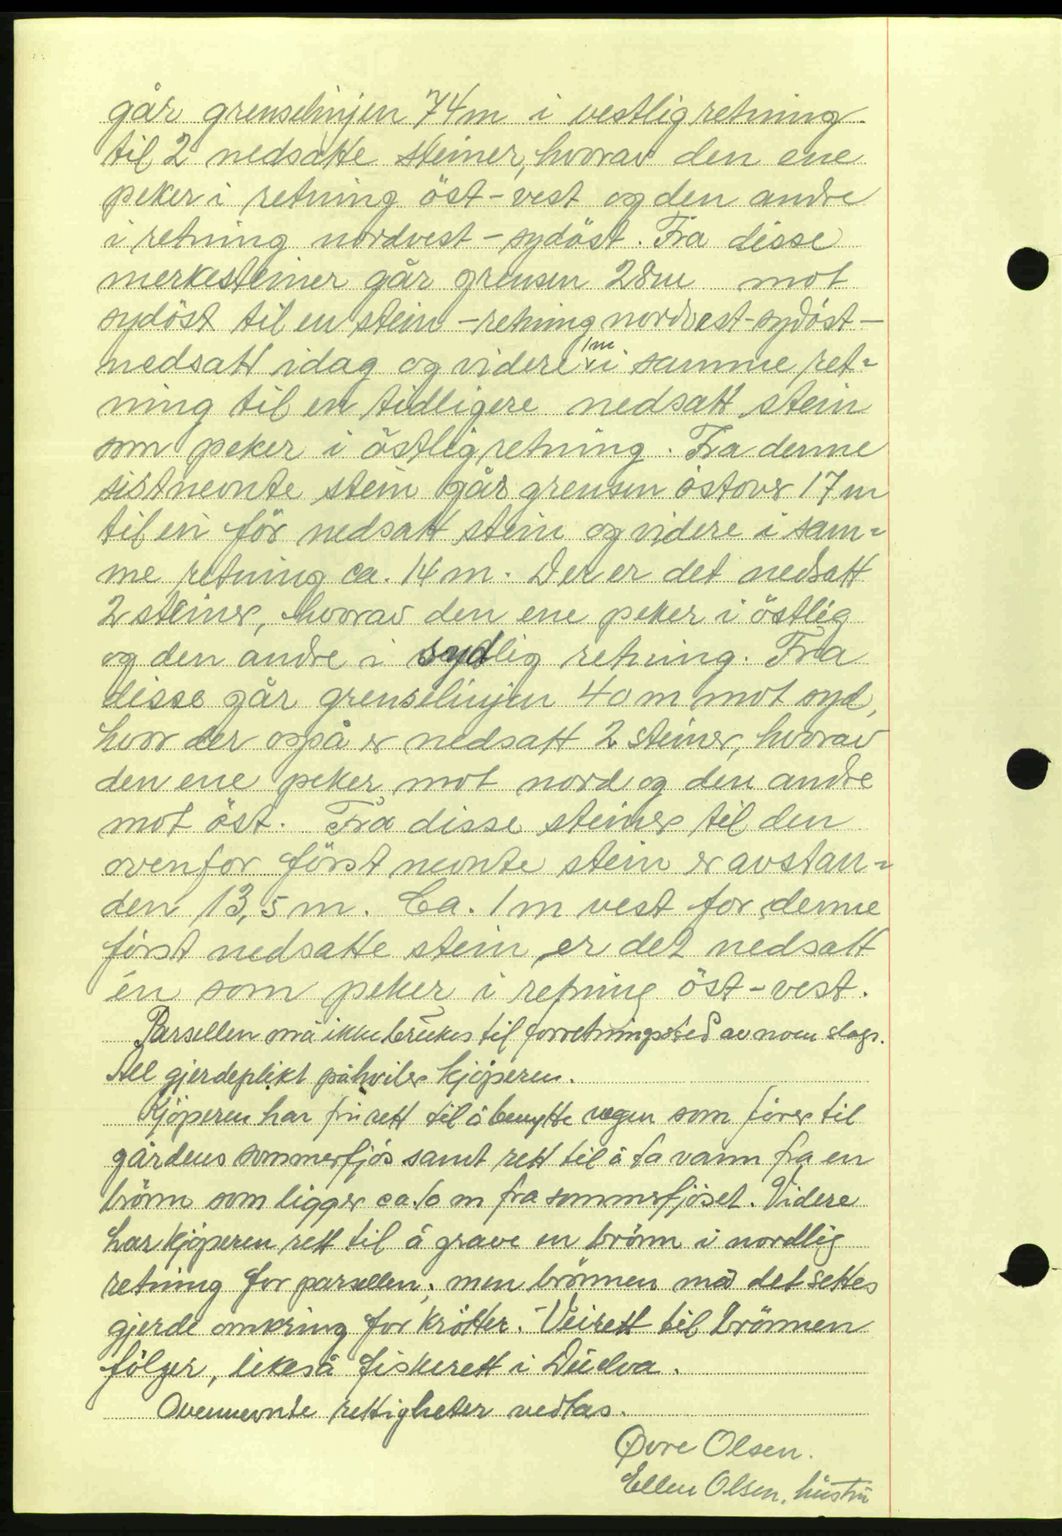 går grenselinjen 74 m i vestlig retning
til 2 nedsatte steiner, hvorav den ene
peker i retning öst-vest og den andre
i retning nordvest-sydöst. Fra disse
merkesteiner går grensen 28 m mot
sydöst til en stein - retning nordvest-sydöst -
nedsatt idag og videre 1m i samme ret-
ning til en tidligere nedsatt stein
som peker i östlig retning. Fra denne
sistnevnte stein går grensen östover 17 m
til en för nedsatt stein og videre i sam-
me retning ca. 14 m. Der er det nedsatt
2 steiner, hvorav den ene peker i östlig
og den andre i sydlig retning. Fra
disse går grenselinjen 40 m mot syd,
hvor der også er nedsatt 2 steiner, hvorav
den ene peker mot nord og den andre
mot öst. Fra disse steiner til den
ovenfor först nevnte stein er avstan-
den 13,5 m. Ca. 1 m vest for denne
först nedsatte stein er det nedsatt
én som peker i retning öst-vest.
Parsellen må ikke brukes til forretningssted av noen slags.
All gjerdeplikt påhviler kjöperen.
Kjöperen har fri rett til å benytte vegen som förer til
gårdens sommerfjös samt rett til å ta vann fra en
brönn som ligger ca. 10 m fra sommerfjöset. Videre
har kjöperen rett til å grave en brönn i nordlig
retning for parsellen, men brönnen må det settes
gjerde omkring for krötter. Veirett til brönnen
fölger, likeså fiskerett i
Ovennevnte rettigheter vedtas.
Øvre Olsen.
Ellen Olsen, hustru